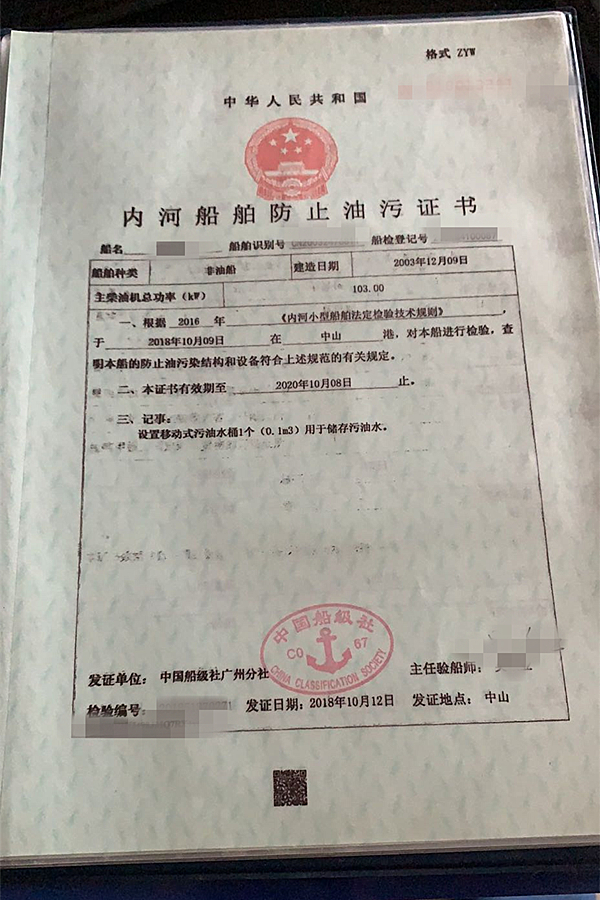 格式 ZYW
中华人民共和国
内河船舶防止油污证书
船名 船舶识别号 船检登记号
船舶种类 非油船 建造日期 2003年12月09日
主柴油机总功率（kW） 103.00
一、根据 2016 年 《内河小型船舶法定检验技术规则》，
于 2018年10月09日 在 中山 港，对本船进行检验，查
明本船的防止油污染结构和设备符合上述规范的有关规定。
二、本证书有效期至 2020年10月08日 止。
三、记事：
设置移动式污油水桶1个（0.1m3）用于储存污油水。
中国船级社
CO 67
CHINA CLASSIFICATION SOCIETY
发证单位： 中国船级社广州分社 主任验船师：
检验编号： 发证日期：2018年10月12日 发证地点： 中山